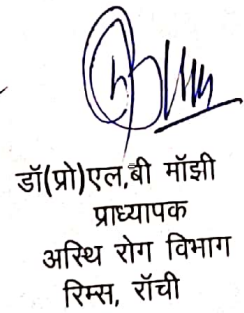 डॉ(प्रो)एल.बी मॉझी
प्राध्यापक
अस्थि रोग विभाग
रिम्स, रॉची